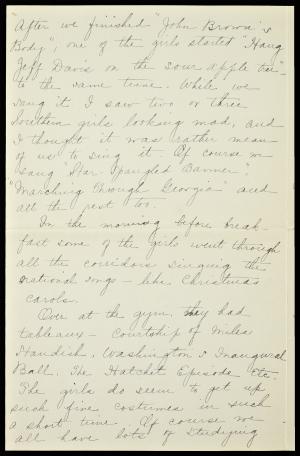 "After we finished "John Brown's
Body", one of the girls started "Hang
Jeff Davis on the sour apple tree"
to the same tune. While we
sang it I saw two or three
Southern girls looking mad, and
I thought it was rather mean
of us to sing it. Of course we
sang "Star Spangled Banner",
"Marching Through Georgia" and
all the rest too.
In the morning before break-
fast some of the girls went through
all the corridors singing the
national songs - like Christmas
carols.
Over at the gym. they had
tableaux - Courtship of Miles
Standish, Washington's Inaugural
Ball, The Hatchet Episode etc.
The girls do seem to get up
such fine costumes in such
a short time. Of course we
all have lots of studying